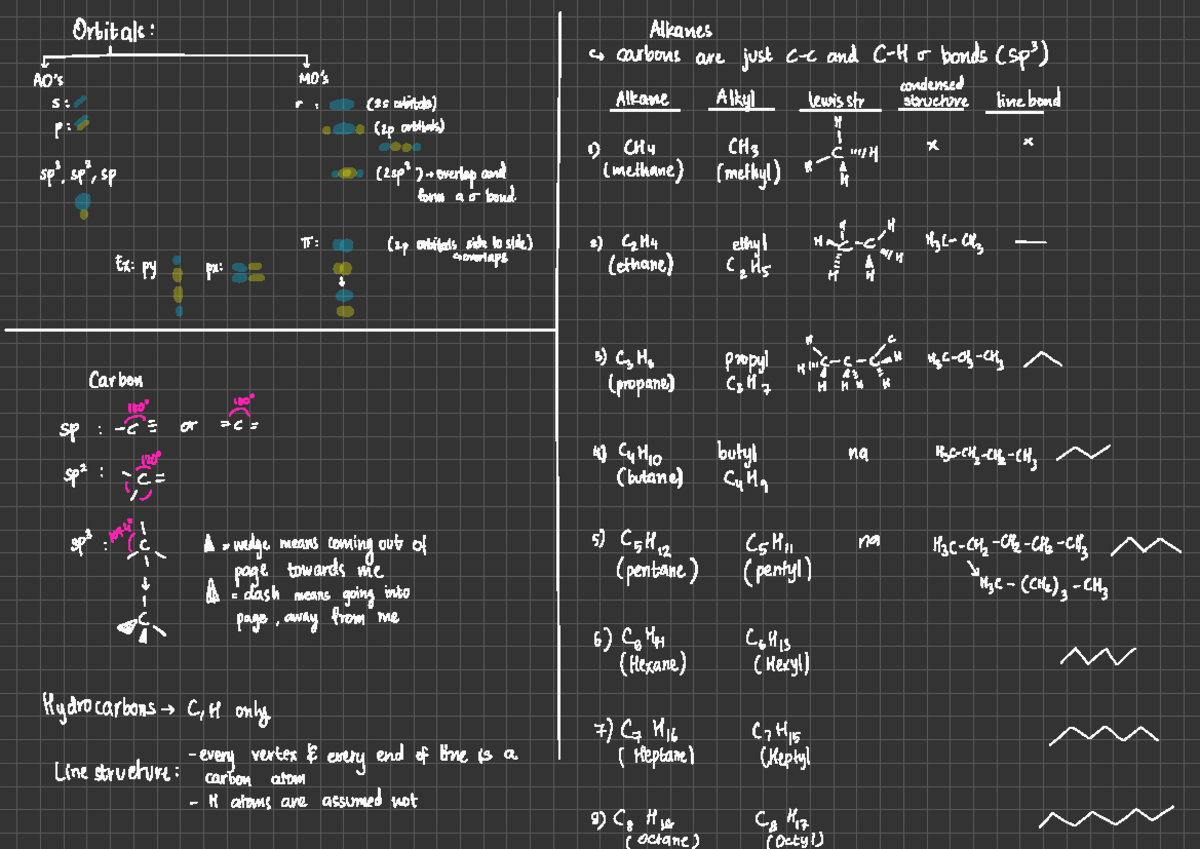 Orbitals:
AO's
MO's
s:
σ:
(2s orbitals)
p:
(2p orbitals)
sp³, sp², sp
(2sp³) → overlap and
form a σ bond
π:
(2p orbitals side to side)
overlaps
Ex: py
px:
Carbon
sp : -C≡ or =C=
180°
180°
sp² :
120°
C=
sp³ :
C
C
= wedge means coming out of
page towards me
= dash means going into
page, away from me
Hydrocarbons → C, H only
Line structure:
- every vertex & every end of line is a
carbon atom
- H atoms are assumed not
Alkanes
↪ carbons are just C-C and C-H σ bonds (sp³)
Alkane
Alkyl
lewis str
condensed
structure
line bond
1) CH4
(methane)
CH3
(methyl)
H
C
H
H
H
x
x
2) C2H4
(ethane)
ethyl
C2H5
H
H
H
C-C
H
H
H
H3C-CH3
3) C3H8
(propane)
propyl
C3H7
H
C
H
C-C-C
H
H
H
H
H
H3C-CH2-CH3
4) C4H10
(butane)
butyl
C4H9
na
H3C-CH2-CH2-CH3
5) C5H12
(pentane)
C5H11
(pentyl)
na
H3C-CH2-CH2-CH2-CH3
H3C-(CH2)3-CH3
6) C6H14
(Hexane)
C6H13
(Hexyl)
7) C7H16
(Heptane)
C7H15
(Heptyl)
8) C8H18
(octane)
C8H17
(Octyl)